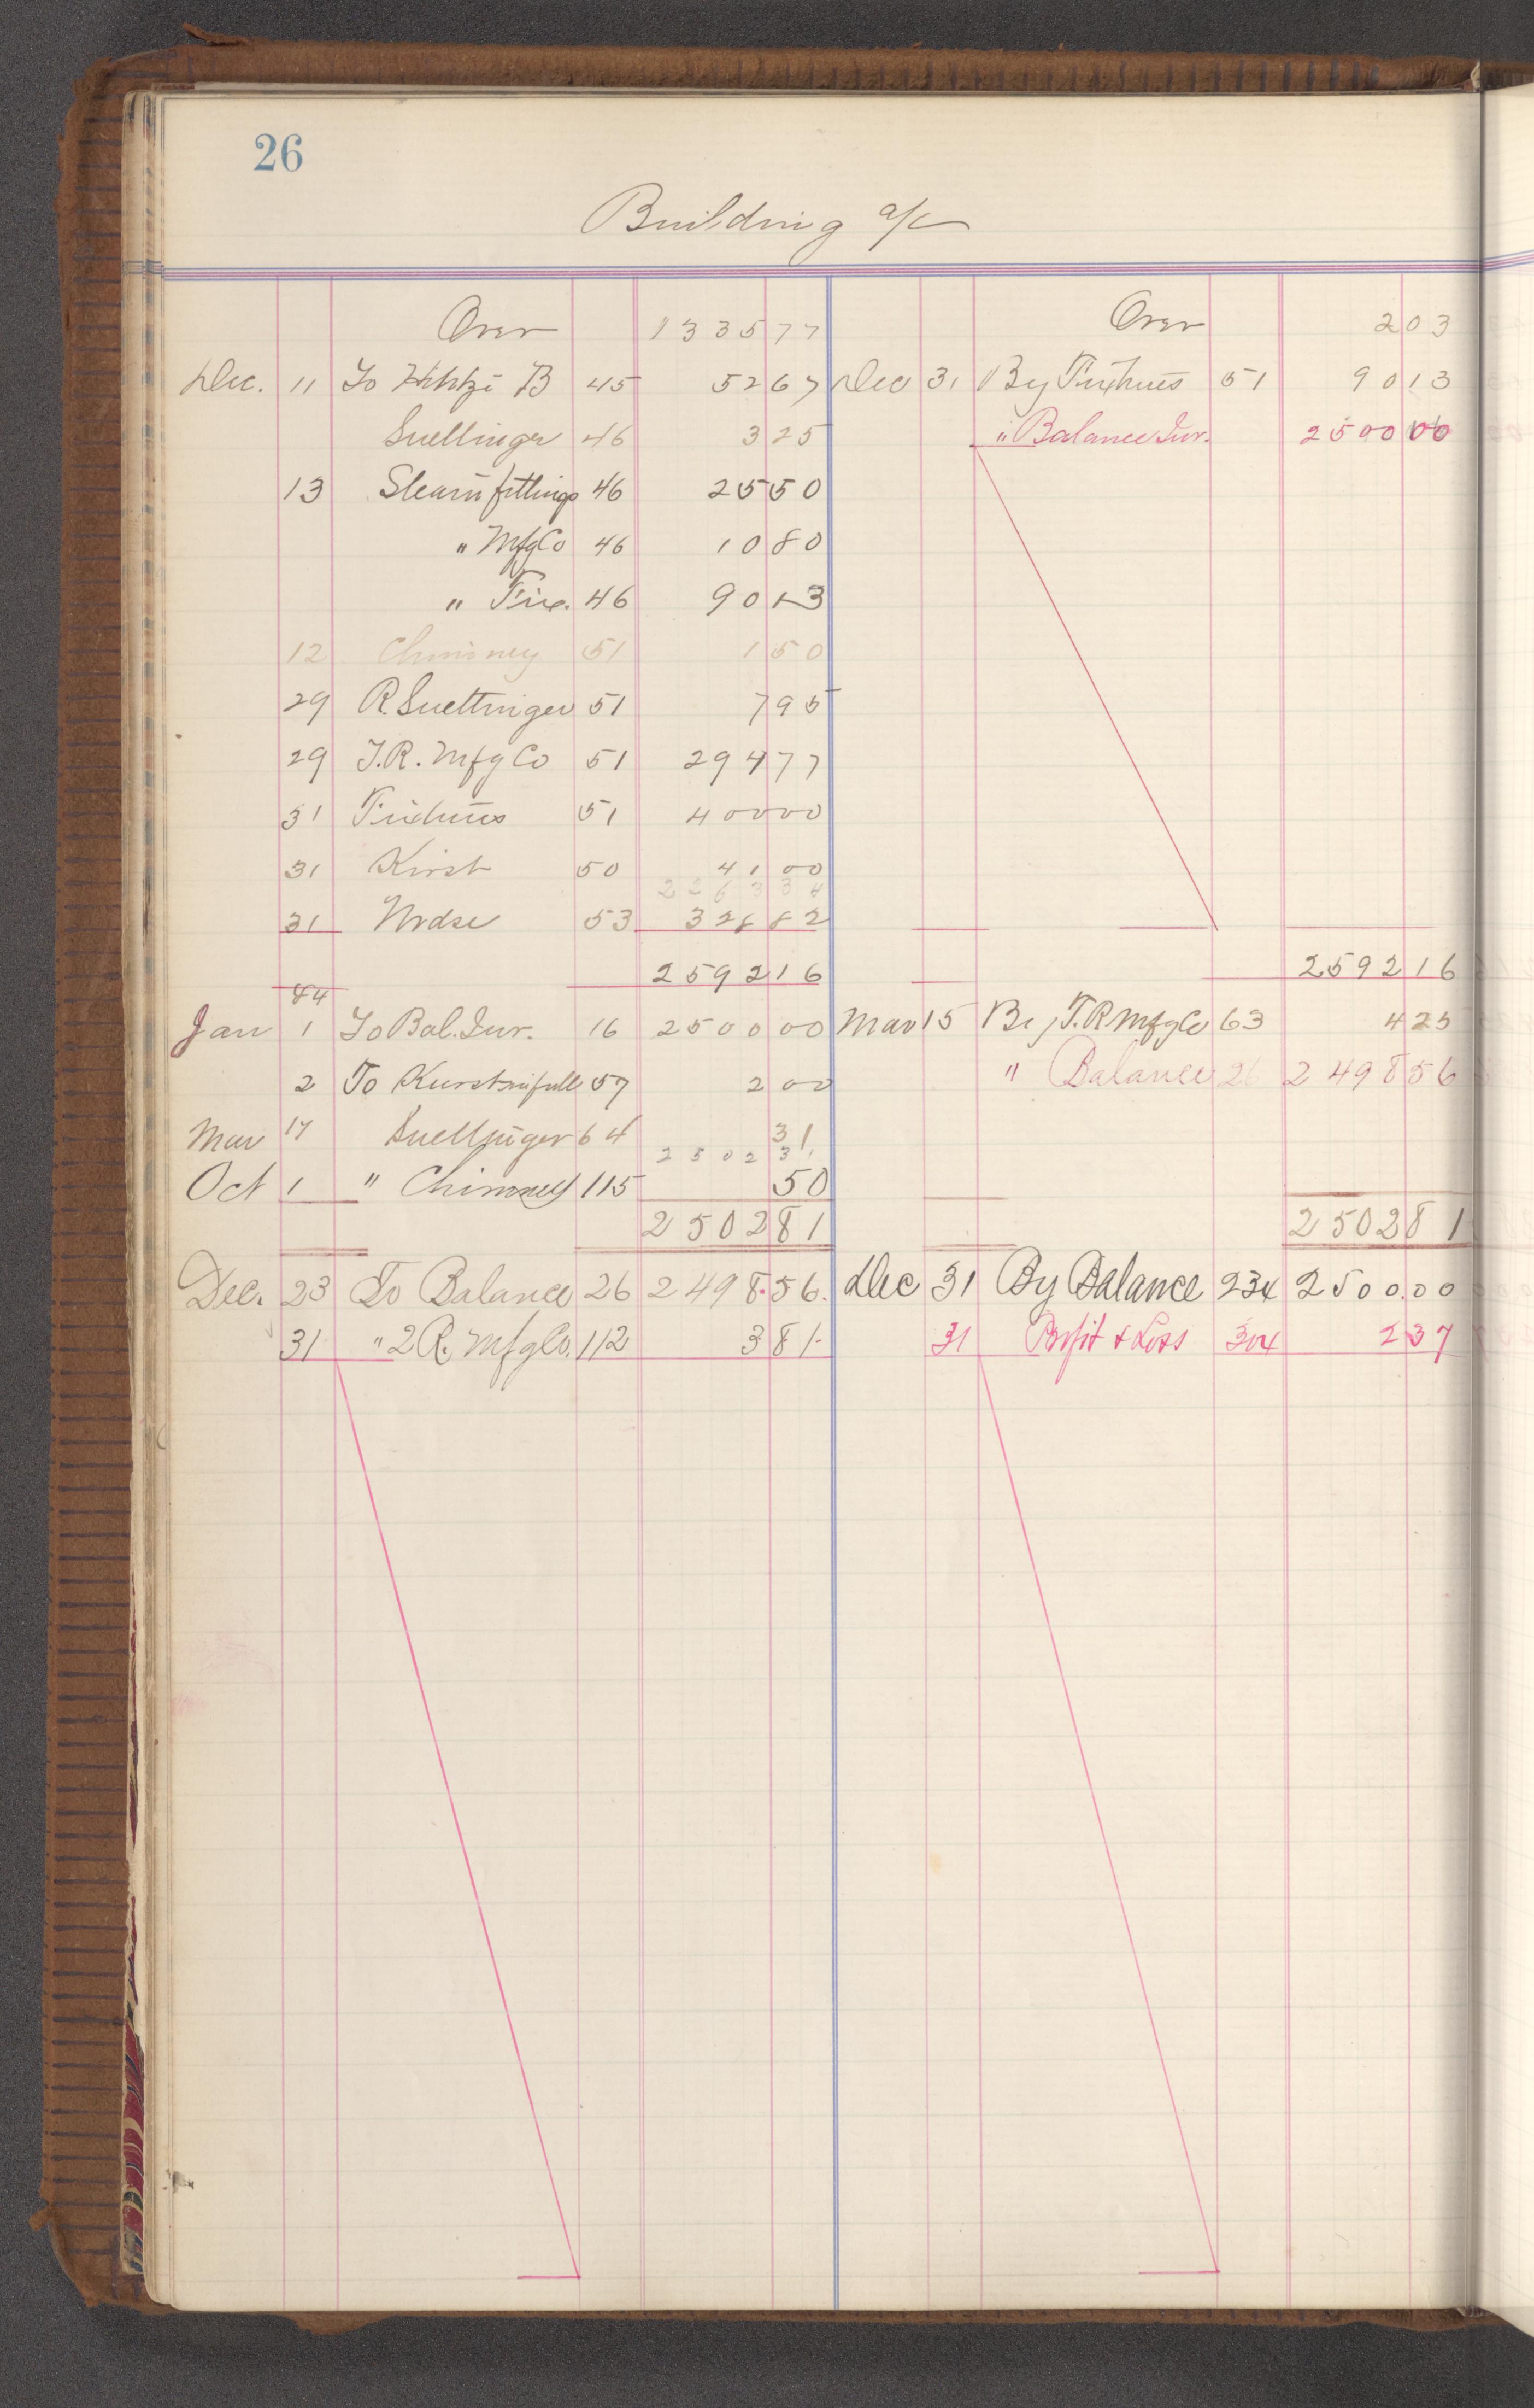 26
Building a/c
Over 1335 77
Dec. 11 To B 45 52 67
Suellinger 46 3 25
13 Steam fittings 46 25 50
" Mfg Co 46 10 80
" Fix. 46 90 13
12 Chimney 51 1 50
29 R. Suettinger 51 7 95
29 T.R. Mfg Co 51 294 77
31 Fixtures 51 400 00
31 Kirst 50 41 00
2263 34
31 Mdse 53 328 82
2592 16
84
Jan 1 To Bal. Inv. 16 2500 00
2 To Kurst in full 57 2 00
Mar 17 Suettinger 64 31
2502 31
Oct 1 " Chimney 115 50
2502 81
Dec. 23 To Balance 26 2498.56.
31 " 2 R. Mfg Co. 112 3 81-
Over 2 03
Dec 31 By Fixtures 51 90 13
" Balance Inv. 2500 00
2592 16
Mar 15 By T.R Mfg Co 63 4 25
" Balance 26 2498 56
2502 81
Dec 31 By Balance 234 2500.00
31 Profit & Loss 304 2 37